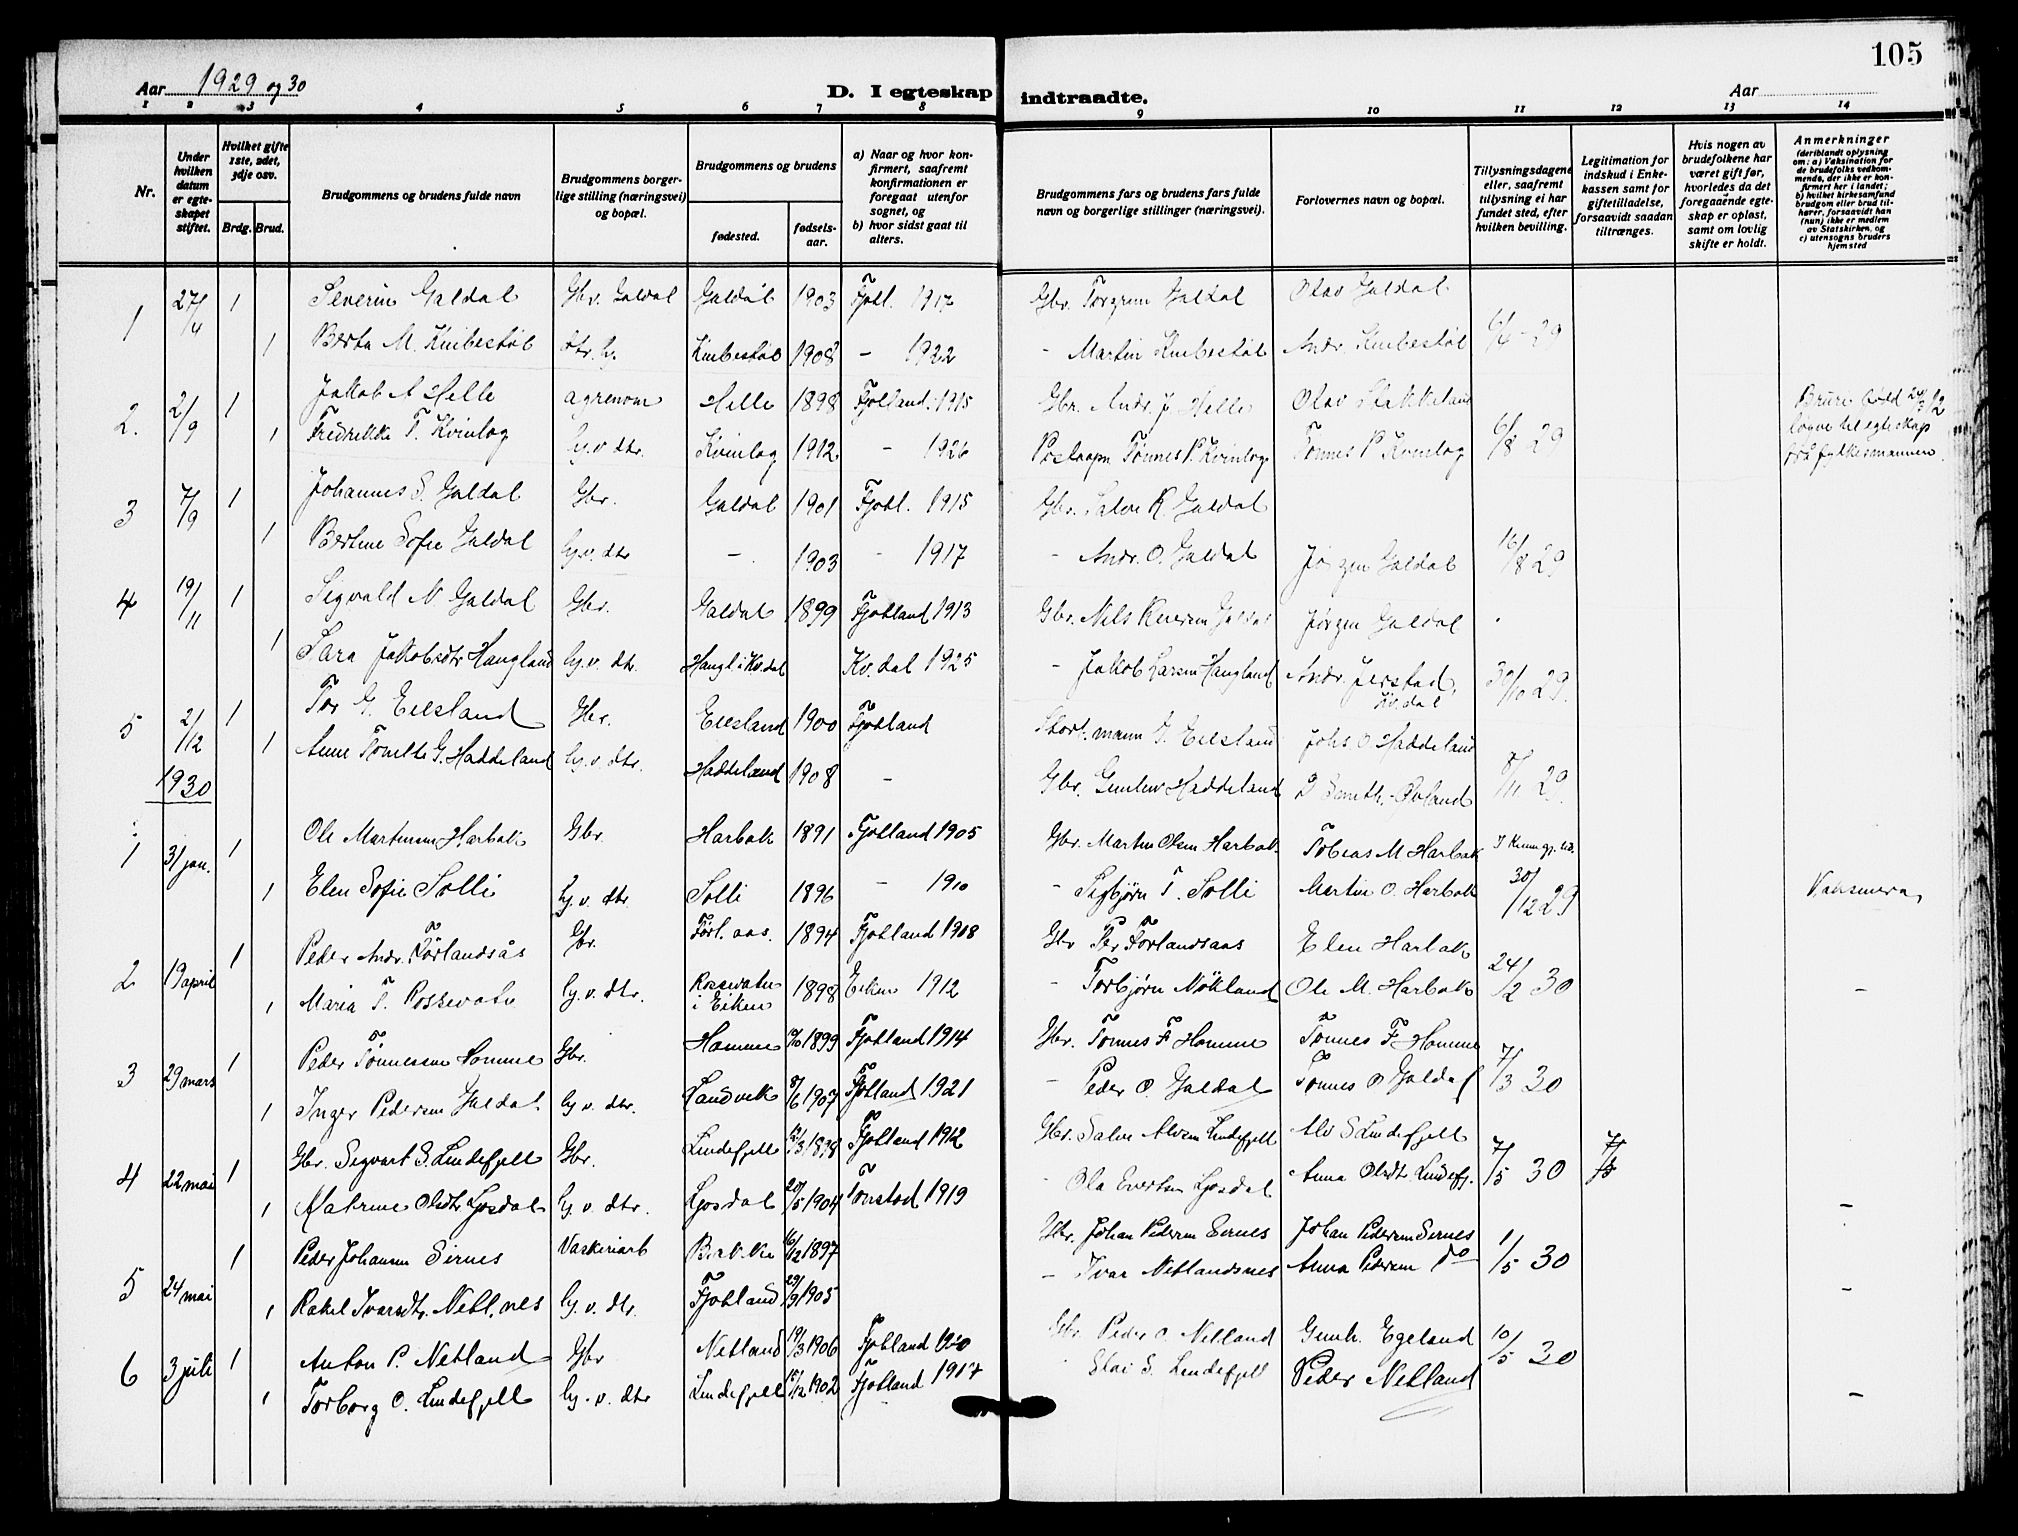 105
Aar 1929 og 30
D. I egteskap indtraadte.
Aar
1 2 3 4 5 6 7 8 9 10 11 12 13 14
Nr.
Under hvilken datum er egteskapet stiftet.
Hvilket gifte 1ste, 2det, 3dje osv.
Brdg. Brud.
Brudgommens og brudens fulde navn
Brudgommens borgerlige stilling (næringsvei) og bopæl.
Brudgommens og brudens
fødested.
fødselsaar.
a) Naar og hvor konfirmert, saafremt konfirmationen er foregaat utenfor sognet, og
b) hvor sidst gaat til alters.
Brudgommens fars og brudens fars fulde navn og borgerlige stillinger (næringsvei).
Forlovernes navn og bopæl.
Tillysningsdagene eller, saafremt tillysning ei har fundet sted, efter hvilken bevilling.
Legitimation for indskud i Enkekassen samt for giftetilladelse, forsaavidt saadan tiltrænges.
Hvis nogen av brudefolkene har været gift før, hvorledes da det foregaaende egteskap er opløst, samt om lovlig skifte er holdt.
Anmerkninger (deriblandt oplysning om: a) Vaksination for de brudefolks vedkommende, der ikke er konfirmert her i landet; b) hvilket kirkesamfund brudgom eller brud tilhører, forsaavidt han (hun) ikke er medlem av Statskirken, og c) utensogns bruders hjemsted
1 27/4 1 Severin Galdal Gbr. Galdal Galdal 1903 Fjotl. 1917 Gbr. Torgrim Galdal Olav Galdal
1 Berta M. Knibestøl dtr. hj. Knibestøl 1908 - 1922 - Martin Knibestøl Andr. Knibestøl 6/4 - 29
2. 2/9 1 Jakob A Helle agronom Helle 1898 Fjotland. 1915 Gbr. Andr. J. Helle Olav Stakkeland
1 Fredrikke T. Kvinlog hj. v dtr. Kvinlog 1912 - 1926 Postaapn Tønnes P. Kvinlog Tønnes P Kvinlog 6/8 29 Bruri født 24/5 12 løyve til egteskap frå fylkesmannen.
3 7/9 1 Johannes S. Galdal Gbr. Galdal 1901 Fjotl. 1915 Gbr. Salve K. Galdal
1 Bertine Sofie Galdal hj. v. dtr - 1903 - 1917 - Andr. O. Galdal Jørgen Galdal 16/8 29
4 19/11 1 Sigvald N Galdal Gbr. Galdal 1899 Fjotland 1913 Gbr. Nils Galdal Jørgen Galdal
1 Sara Jakobsdtr Haugland hj. v. dtr. Haugl i Kv.dal Kv.dal 1925 - Jakob Larsen Haugland Andr. Jerstad, Kv.dal 30/10 29.
5 2/12 1 Tor G. Eiesland Gbr. Eiesland 1900 Fjotland mann G. Eiesland Johs O. Haddeland
1 Anne Tomelte G. Haddeland hj. v. dtr. Haddeland 1908 - Gbr. Gunlev Haddeland 8/11 29.
1930
1 31 jan. 1 Ole Martinsen Harbak Gbr. Harbak 1891 Fjotland 1905 Gbr. Martin Olsen Harbak Tobias M Harbak
1 Elen Sofie Solli hj. v. dtr. Solli 1896 - 1910 - Sigbjørn T. Solli Martin O. Harbak 30/12 29
2 19 april 1 Peder Andr. Førlandsås Gbr. Førl. aas. 1894 Fjotland 1908 Gbr Per Forlandsaas Elen Harbak
1 Maria T. Rossevatn hj. v. dtr. Rossevatn i Eiken 1898 Eiken 1912 - Torbjørn Nökland Ole M. Harbak 24/2 30 -
3 29 mars 1 Peder Tønnessen Homme Gbr. Homme 1899 Fjotland 1914 Gbr. Tønnes F Homme Tønnes F Homme
1 Inger Pedersen Galdal. hj v. dtr. Landvik 8/6 1907 Fjotland 1921 - Peder O. Galdal Tønnes O Galdal 7/3 30
4 22 mai 1 Gbr. Segvart S. Lindefjell Gbr. Lindefjell 12/3 1898 Fjotland 1912 Gbr. Salve Alvsen Lindefjell Alv S Lindefjell
1 Katrine Olsdtr Ljosdal hj. v. dtr. Ljosdal 20/5 1904 Tonstad 1919 - Ola Evertsen Ljosdal Anna Olsdt Lindefj. 7/5 30 7/5 -
5 24 mai 1 Peder Johansen Sirnes 16/12 1897 Gbr. Johan Pedersen Sirnes Johan Pedersen Sirnes
1 Rakel Ivarsdtr. Netl.nes hj. v. dtr. Fjotland 29/9 1905 - Ivar Netlandsnes Anna Pedersen Do 1/5 30 -
6 3 juli 1 Anton P. Netland Gbr Netland 19/3 1906 Fjotland 1920 Gbr. Peder O. Netland Gunh. Egeland
1 Torborg O. Lindefjell hj. v. dtr Lindefjell 15/12 1902 Fjotland 1917 S. Lindefjell Peder Netland 10/5 30 -